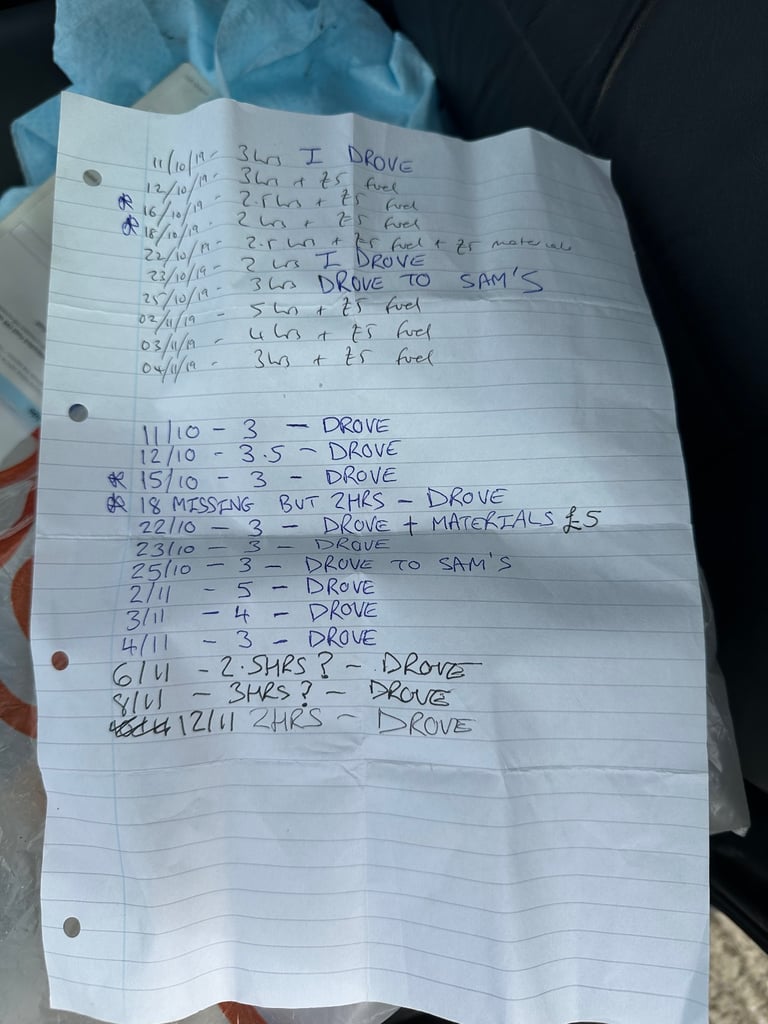 11/10/19 - 3hrs I DROVE
12/10/19 - 3hrs + £5 fuel
* 16/10/19 - 2.5hrs + £5 fuel
* 18/10/19 - 2 hrs + £5 fuel
22/10/19 - 2.5 hrs + £5 fuel + £5 materials
23/10/19 - 2 hrs I DROVE
25/10/19 - 3hrs DROVE TO SAM'S
02/11/19 - 5hrs + £5 fuel
03/11/19 - 4hrs + £5 fuel
04/11/19 - 3hrs + £5 fuel
11/10 - 3 - DROVE
12/10 - 3.5 - DROVE
* 15/10 - 3 - DROVE
* 18 MISSING BUT 2HRS - DROVE
22/10 - 3 - DROVE + MATERIALS £5
23/10 - 3 - DROVE
25/10 - 3 - DROVE TO SAM'S
2/11 - 5 - DROVE
3/11 - 4 - DROVE
4/11 - 3 - DROVE
6/11 - 2.5HRS? - DROVE
8/11 - 3HRS? - DROVE
12/11 2HRS - DROVE